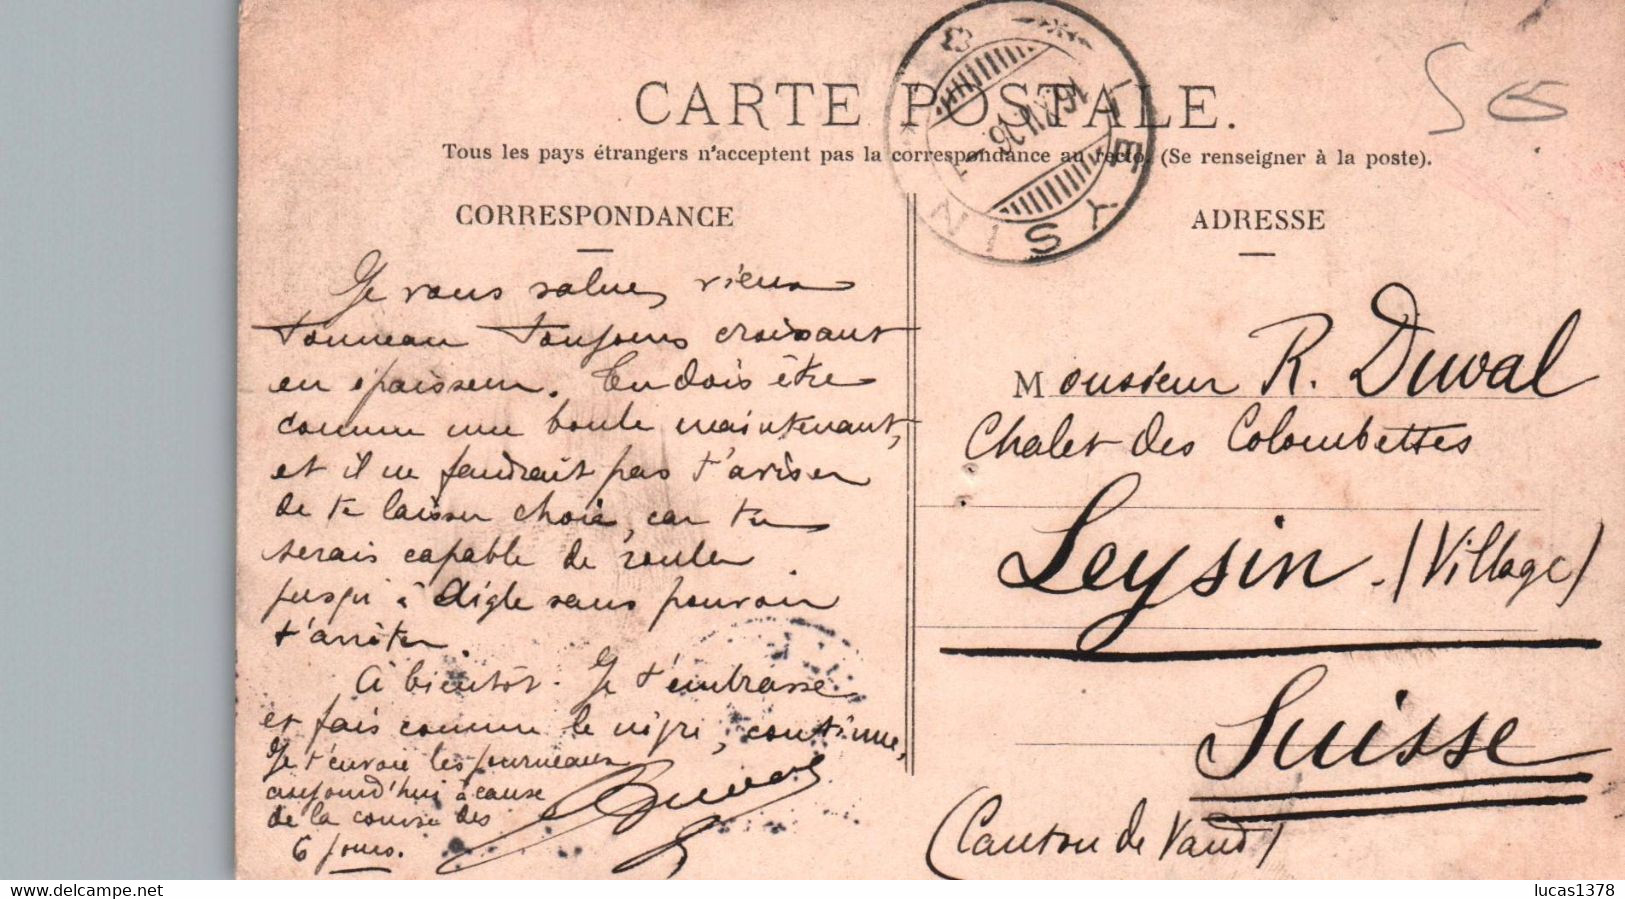 CARTE POSTALE.
Tous les pays étrangers n'acceptent pas la correspondance au recto. (Se renseigner à la poste).
CORRESPONDANCE
Je vous salue, vieux
tonneau toujours croissant
en épaisseur. Tu dois être
comme une boule maintenant,
et il ne faudrait pas t'aviser
de te laisser choir, car tu
serais capable de rouler
jusqu'à Aigle sans pouvoir
t'arrêter.
À bientôt. Je t'embrasse
et fais comme le nègre, continue,
Je t'envoie les journaux
aujourd'hui à cause
de la course des
6 jours.
LEYSIN
ADRESSE
Monsieur R. Duval
Chalet des Colombettes
Leysin. (Village)
Suisse
(Canton de Vaud)
lucas1378